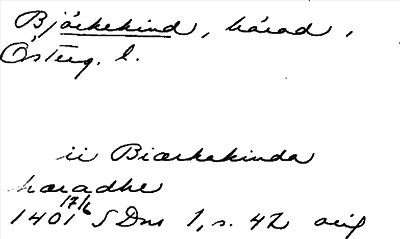 Bjärkekind, härad,
Österg. l.
ii Biærkakinda
haradhe
17/6
1401 SDns 1, s. 42 orig